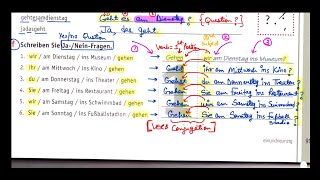 gehtesamdienstag Geht es am Dienstag? [Question?]
jadasgeht Ja, das geht.
Yes/no Question
Schreiben Sie Ja-/Nein-Fragen.
1. wir / am Dienstag / ins Museum / gehen → Gehen wir am Dienstag ins Museum?
2. Ihr / am Mittwoch / ins Kino / gehen → ihr am Mittwoch ins Kino?
3. du / am Donnerstag / ins Theater / gehen → du am Donnerstag ins Theater?
4. Sie / am Freitag / ins Restaurant / gehen → Gehen Sie am Freitag ins Restaurant?
5. wir / am Samstag / ins Schwimmbad / gehen → Gehen wir am Samstag ins
6. Sie / am Sonntag / ins Fußballstadion / gehen → Gehen Sie am Sonntag ins Fußball
[Verb Conjugation]